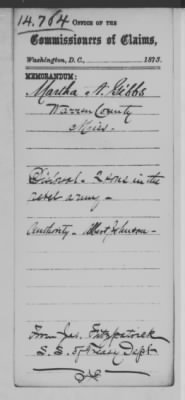 14.764 OFFICE OF THE
Commissioners of Claims,
Washington, D. C., 1873.
MEMORANDUM:
Martha A. Gibbs
Warren County
Miss.
Disloyal - 2 sons in the
rebel army -
Authority - Albert Johnson -
From Jas. Fitzpatrick
S. S. of Treasy Dept